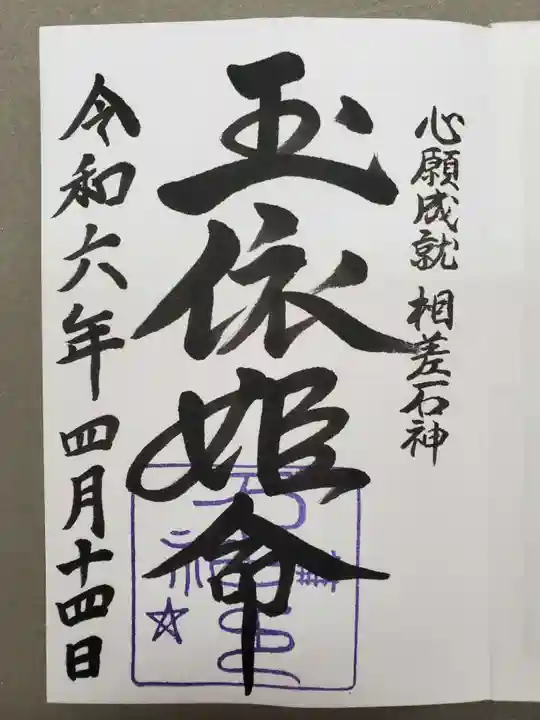 心願成就 相差石神
玉依姫命
石神
令和六年四月十四日